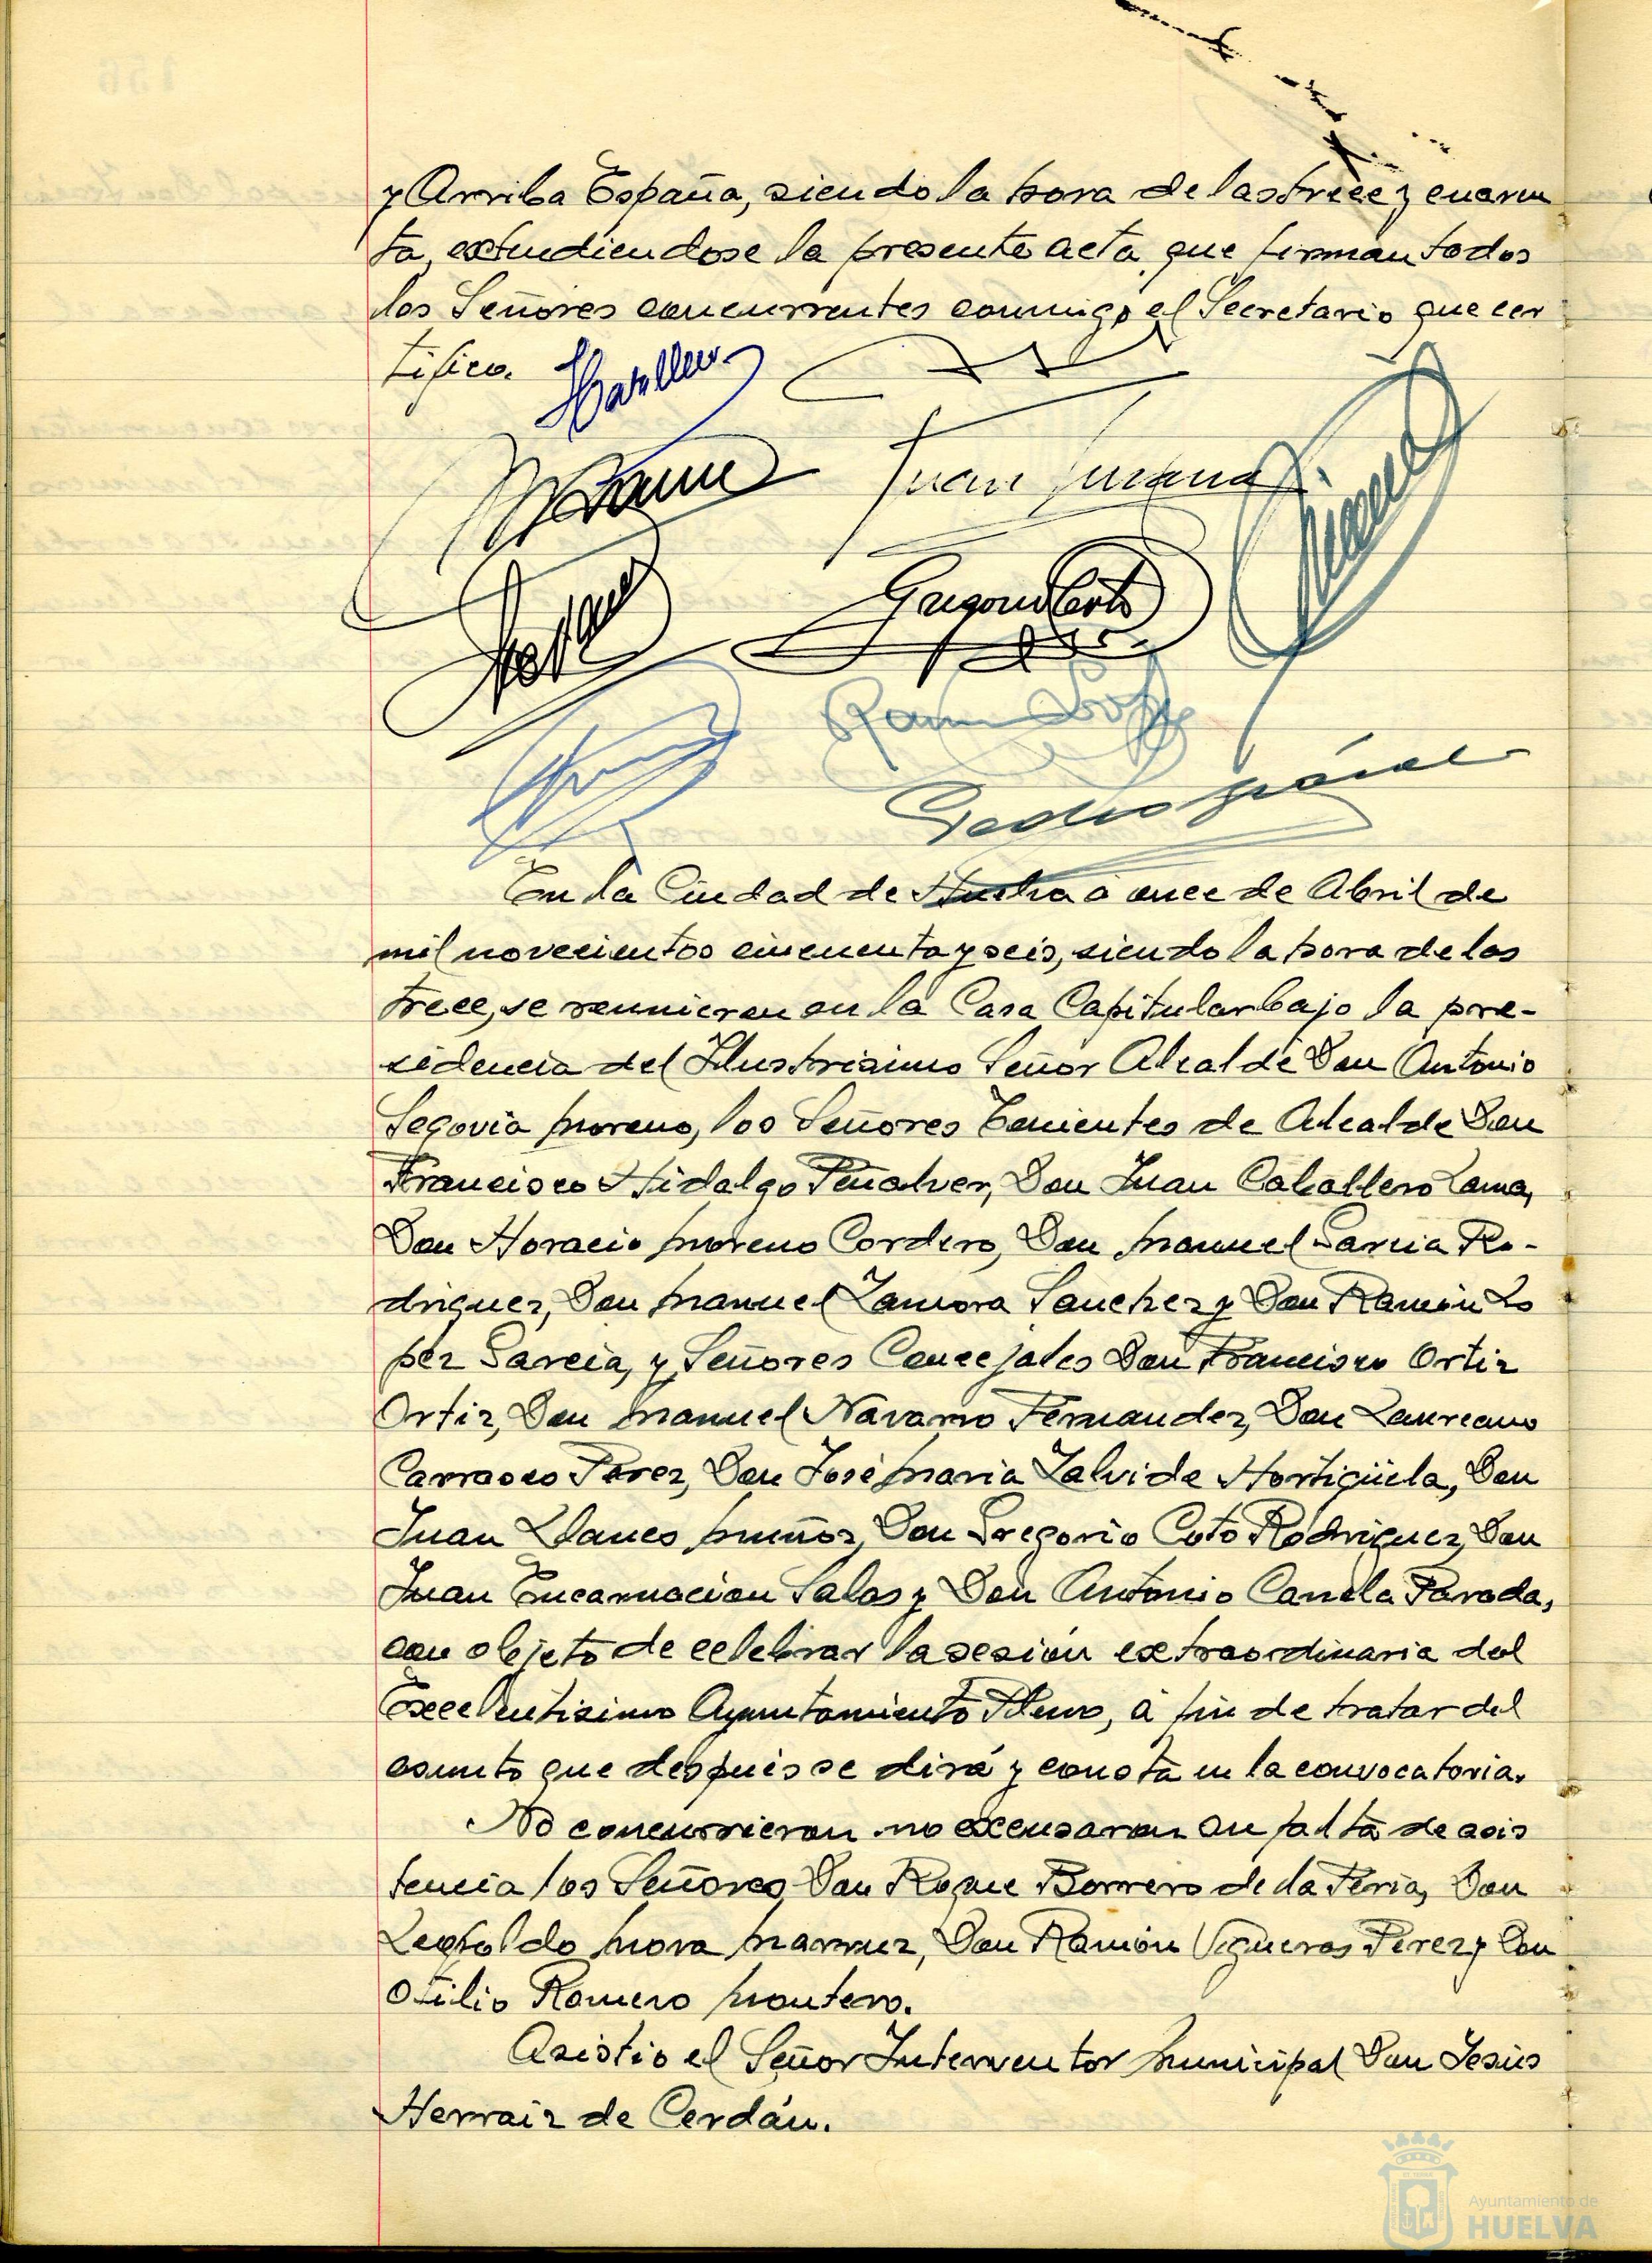 y Arriba España, siendo la hora de las trece y cuaren
ta, extendiendose la presente acta que firman todos
los Señores concurrentes conmigo el Secretario que cer
tifico.
Juan
Gregorio Coto
Ramon Lopez
Pedro
En la Ciudad de Huelva a once de Abril de
mil novecientos cincuenta y seis, siendo la hora de las
trece, se reunieron en la Casa Capitular bajo la pre-
sidencia del Ilustrisimo Señor Alcalde Don Antonio
Segovia Moreno, los Señores Tenientes de Alcalde Don
Francisco Hidalgo Peñalver, Don Juan Caballero Lama,
Don Horacio Moreno Cordero, Don Manuel Garcia Ro-
driguez, Don Manuel Zamora Sanchez y Don Ramón Lo
pez Garcia, y Señores Concejales Don Francisco Ortiz
Ortiz, Don Manuel Navarro Fernandez, Don Laureano
Carrasco Perez, Don José Maria Zalvide Hortigüela, Don
Juan Llanes Muñoz, Don Gregorio Coto Rodriguez, Don
Juan Encarnacion Salas y Don Antonio Canela Parada,
con objeto de celebrar la sesión extraordinaria del
Excelentisimo Ayuntamiento Pleno, á fin de tratar del
asunto que después se dirá y consta en la convocatoria.
No concurrieron no excusaron su falta de asis
tencia los Señores Don Roque Borrero de la Feria, Don
Leopoldo Mora Don Ramón Vigueras Perez y Don
Otilio Romero Montero.
Asistio el Señor Interventor Municipal Don Jesús
Herraiz de Cerdán.
Ayuntamiento de
HUELVA